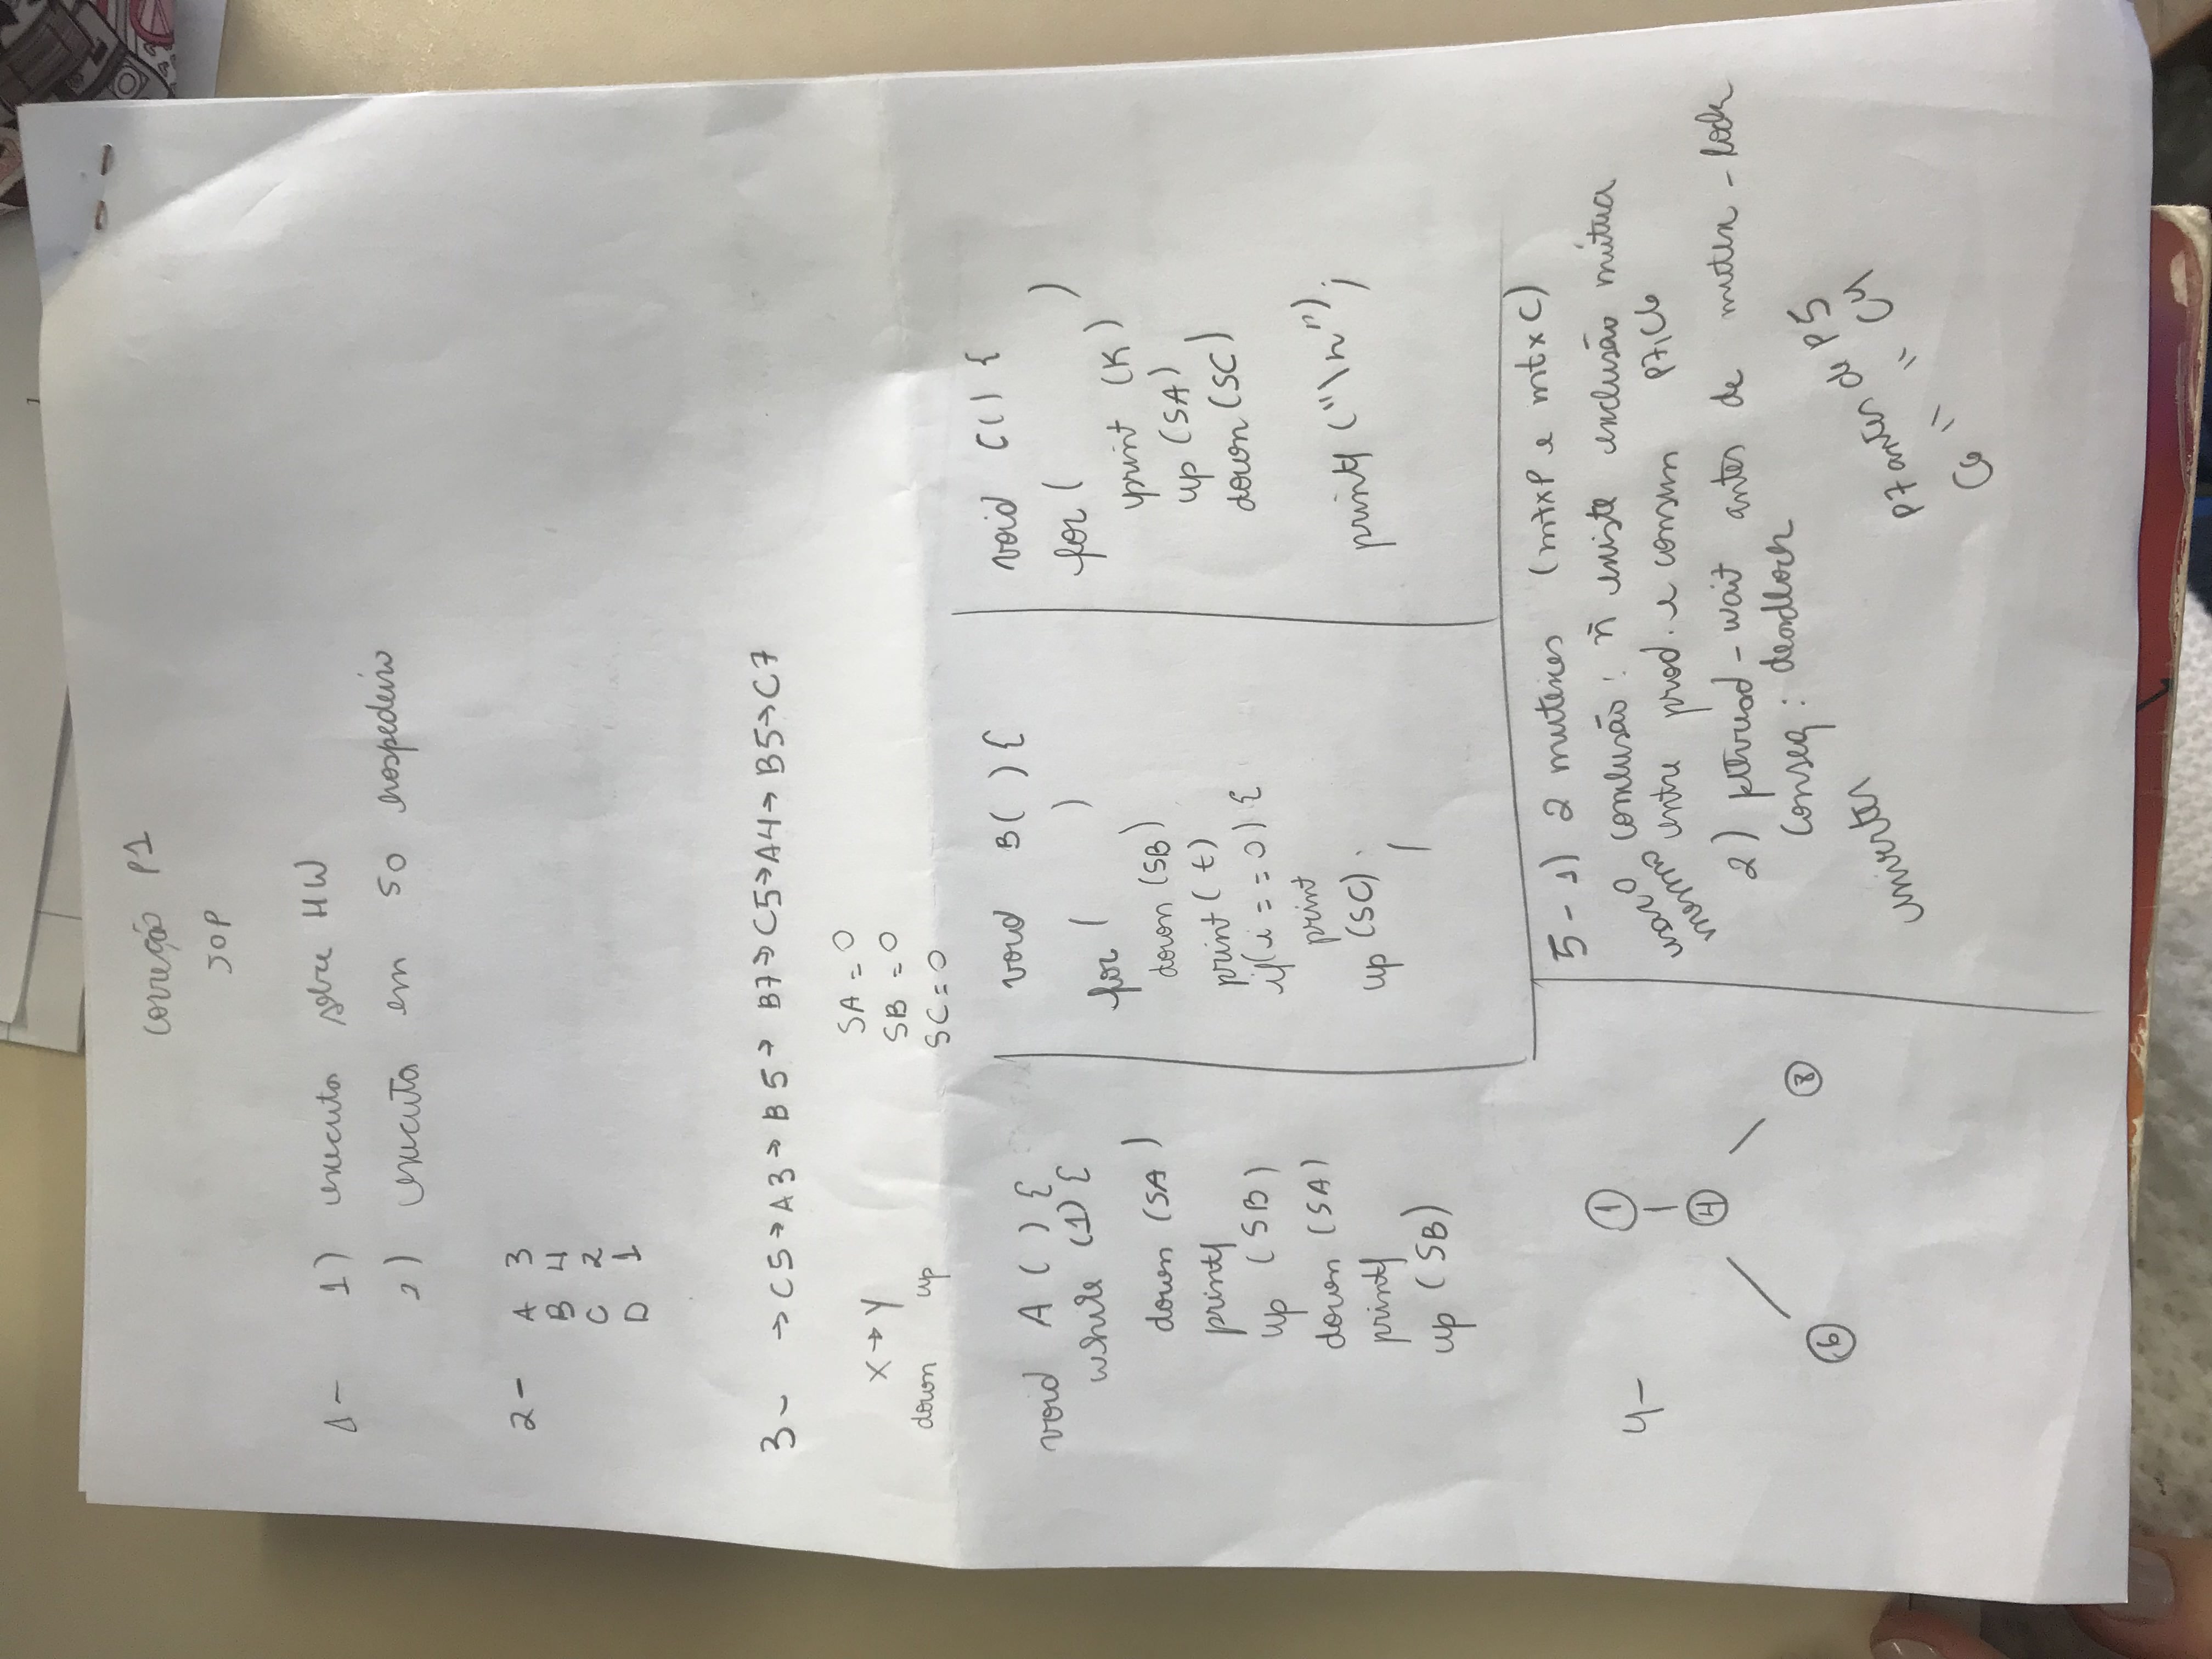 correção P1
SOP
1- 1) executa sobre HW
2) executa em SO hospedeiro
2- A 3
B 4
C 2
D 1
3- → C5 → A3 → B5 → B7 → C5 → A4 → B5 → C7
X → Y
down up
SA = 0
SB = 0
SC = 0
void A ( ) {
while (1) {
down (SA)
printf
up (SB)
down (SA)
printf
up (SB)
void B( ) {
for ( )
down (SB)
print (t)
if(i == 0) {
print
up (SC)
void C( ) {
for ( )
print (K)
up (SA)
down (SC)
printf ("\n");
4-
1
4
6
8
5- 1) 2 mutexes (mtxP e mtxC)
conclusão: ñ existe exclusão mútua
entre prod. e consum P7, C6
usar o
mesmo
2) pthread-wait antes de mutex-lock
Conseq: deadlock
inverter
P7 antes de P5
C6 " " C4